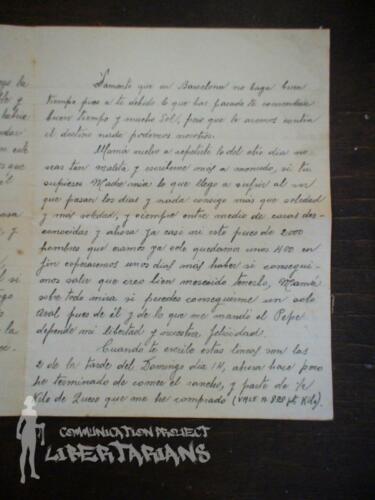 Lamento que en Barcelona no haga buen
tiempo pues a ti debido lo que has pasado te convendria
buen tiempo y mucho Sol, pero que le aremos contra
el destino nada podemos nosotros.
Mamá vuelvo a repetirte lo del otro dia no
seas tan malita y escribeme mas a menudo, si tu
supieses Madre mia lo que llego a sufrir al ver
que pasan los dias y nada consigo mas que soledad
y más soledad, y siempre entre medio de caras des-
conocidas y ahora ya casi ni esto pues de 2.000
hombres que eramos ya solo quedamos unos 400 en
fin esperaremos unos dias más haber si consegui-
mos salir que creo bien merecido tenerlo, Mamá
sobre todo mira si puedes conseguirme un solo
Aval pues de él y de lo que me mandó el Pepe
depende mi libertad y vuestra felicidad.
Cuando te escribo estas lineas son las
2 de la tarde del Domingo dia 14, ahora hace poco
he terminado de comer el rancho, y parte de ½
Kilo de Queso que me he comprado (VALE A 8 pts Kilo).
COMMUNICATION PROJECT
LIBERTARIANS